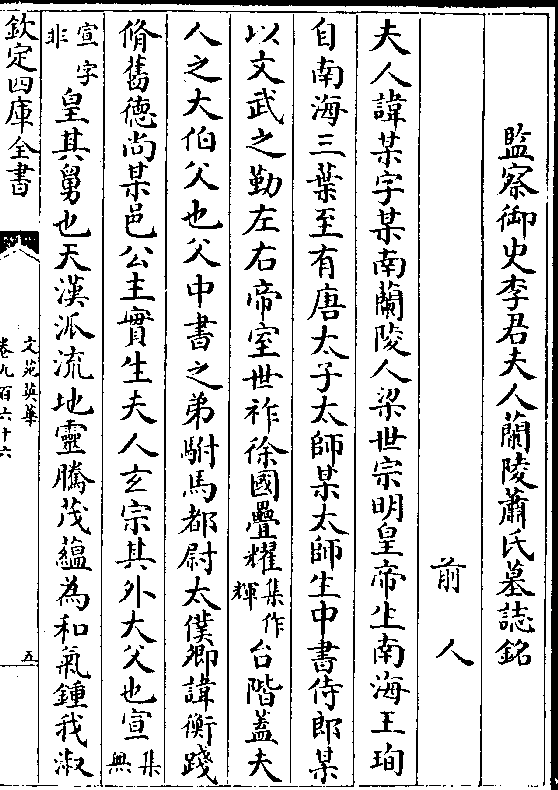 監察御史李君夫人蘭陵蕭氏墓誌銘
前人
夫人諱某字某南蘭陵人梁世宗明皇帝生南海王珣
自南海三葉至有唐太子太師某太師生中書侍郎某
以文武之勤左右帝室世祚徐國疊耀集作輝台階蓋夫
人之大伯父也父中書之弟駙馬都尉太僕卿諱衡踐
脩舊德尚某邑公主實生夫人玄宗其外大父也宣集無
宣字非皇其舅也天漢派流地靈騰茂藴為和氣鍾我淑
欽定四庫全書
文苑英華
卷九百六十六
五